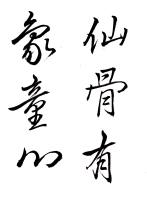 仙骨有
象童心